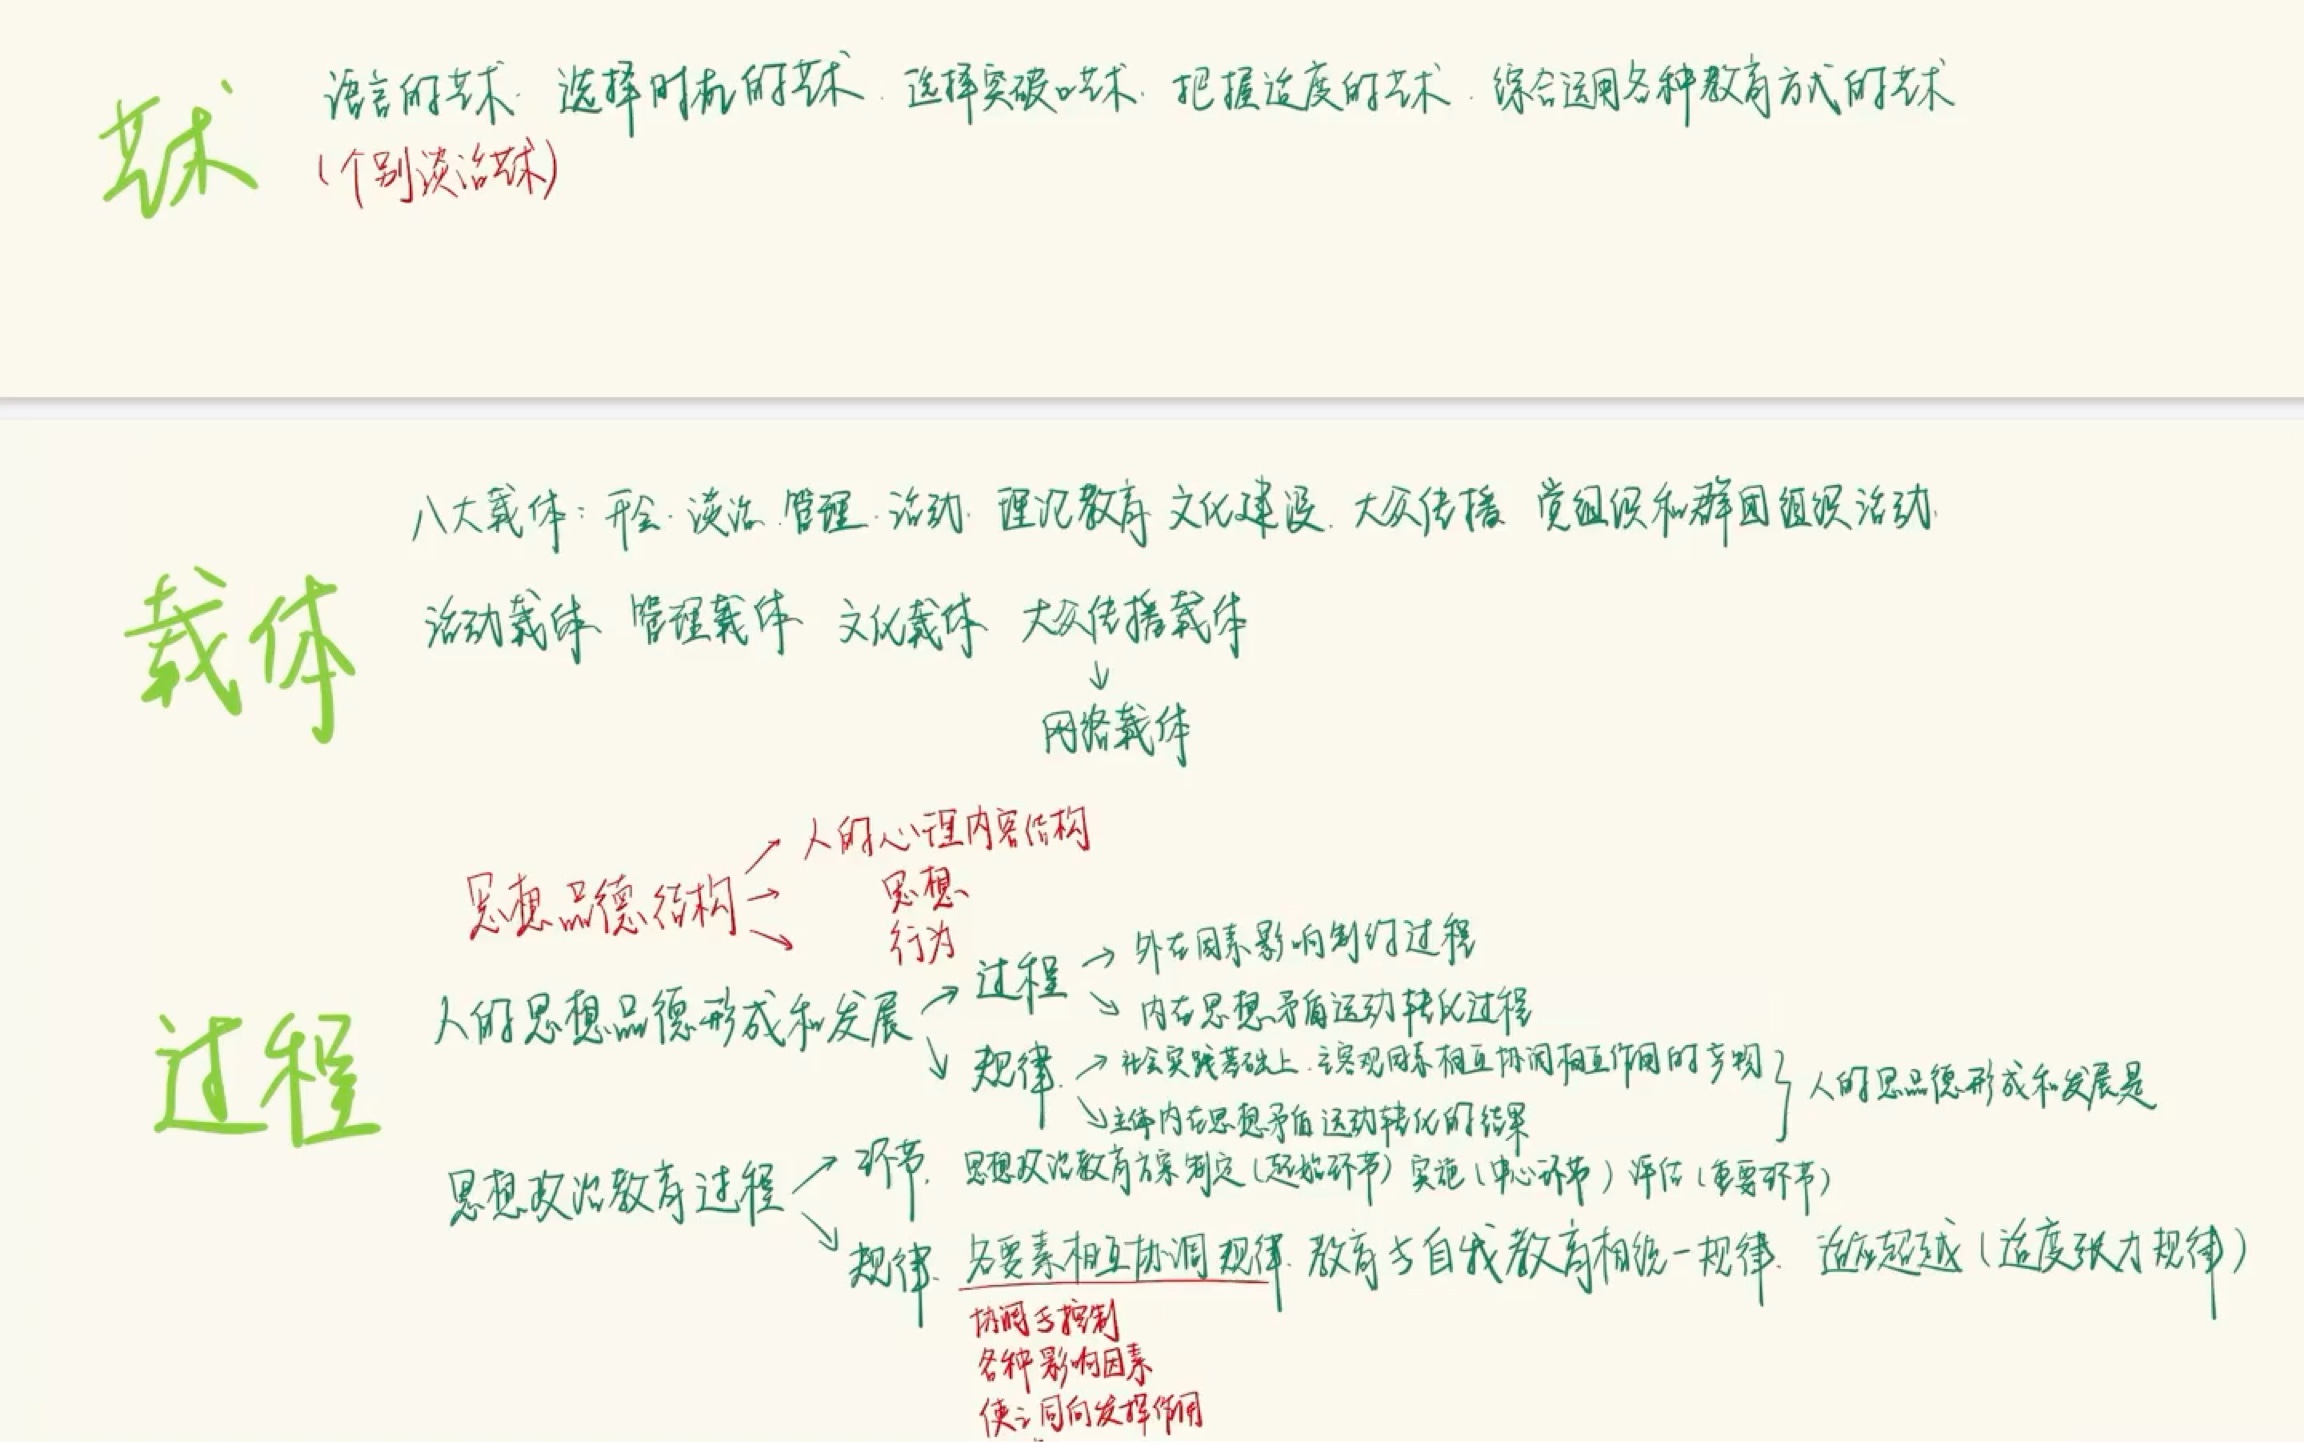 艺术
语言的艺术. 选择时机的艺术. 选择突破口艺术. 把握适度的艺术. 综合运用各种教育方式的艺术
(个别谈话艺术)
载体
八大载体: 开会. 谈话. 管理. 活动. 理论教育 文化建设. 大众传播 党组织和群团组织活动.
活动载体 管理载体 文化载体 大众传播载体
↓
网络载体
过程
思想品德结构 → 人的心理内容结构
→ 思想
→ 行为
人的思想品德形成和发展 → 过程 → 外在因素影响制约过程
→ 内在思想矛盾运动转化过程
→ 规律. → 社会实践基础上. 主客观因素相互协调相互作用的产物 } 人的思品德形成和发展是
→ 主体内在思想矛盾运动转化的结果
思想政治教育过程 → 环节. 思想政治教育方案制定(起始环节) 实施(中心环节) 评估(重要环节)
→ 规律. 各要素相互协调规律. 教育与自我教育相统一规律. 适应超越(适度张力规律)
协调与控制
各种影响因素
使之同向发挥作用